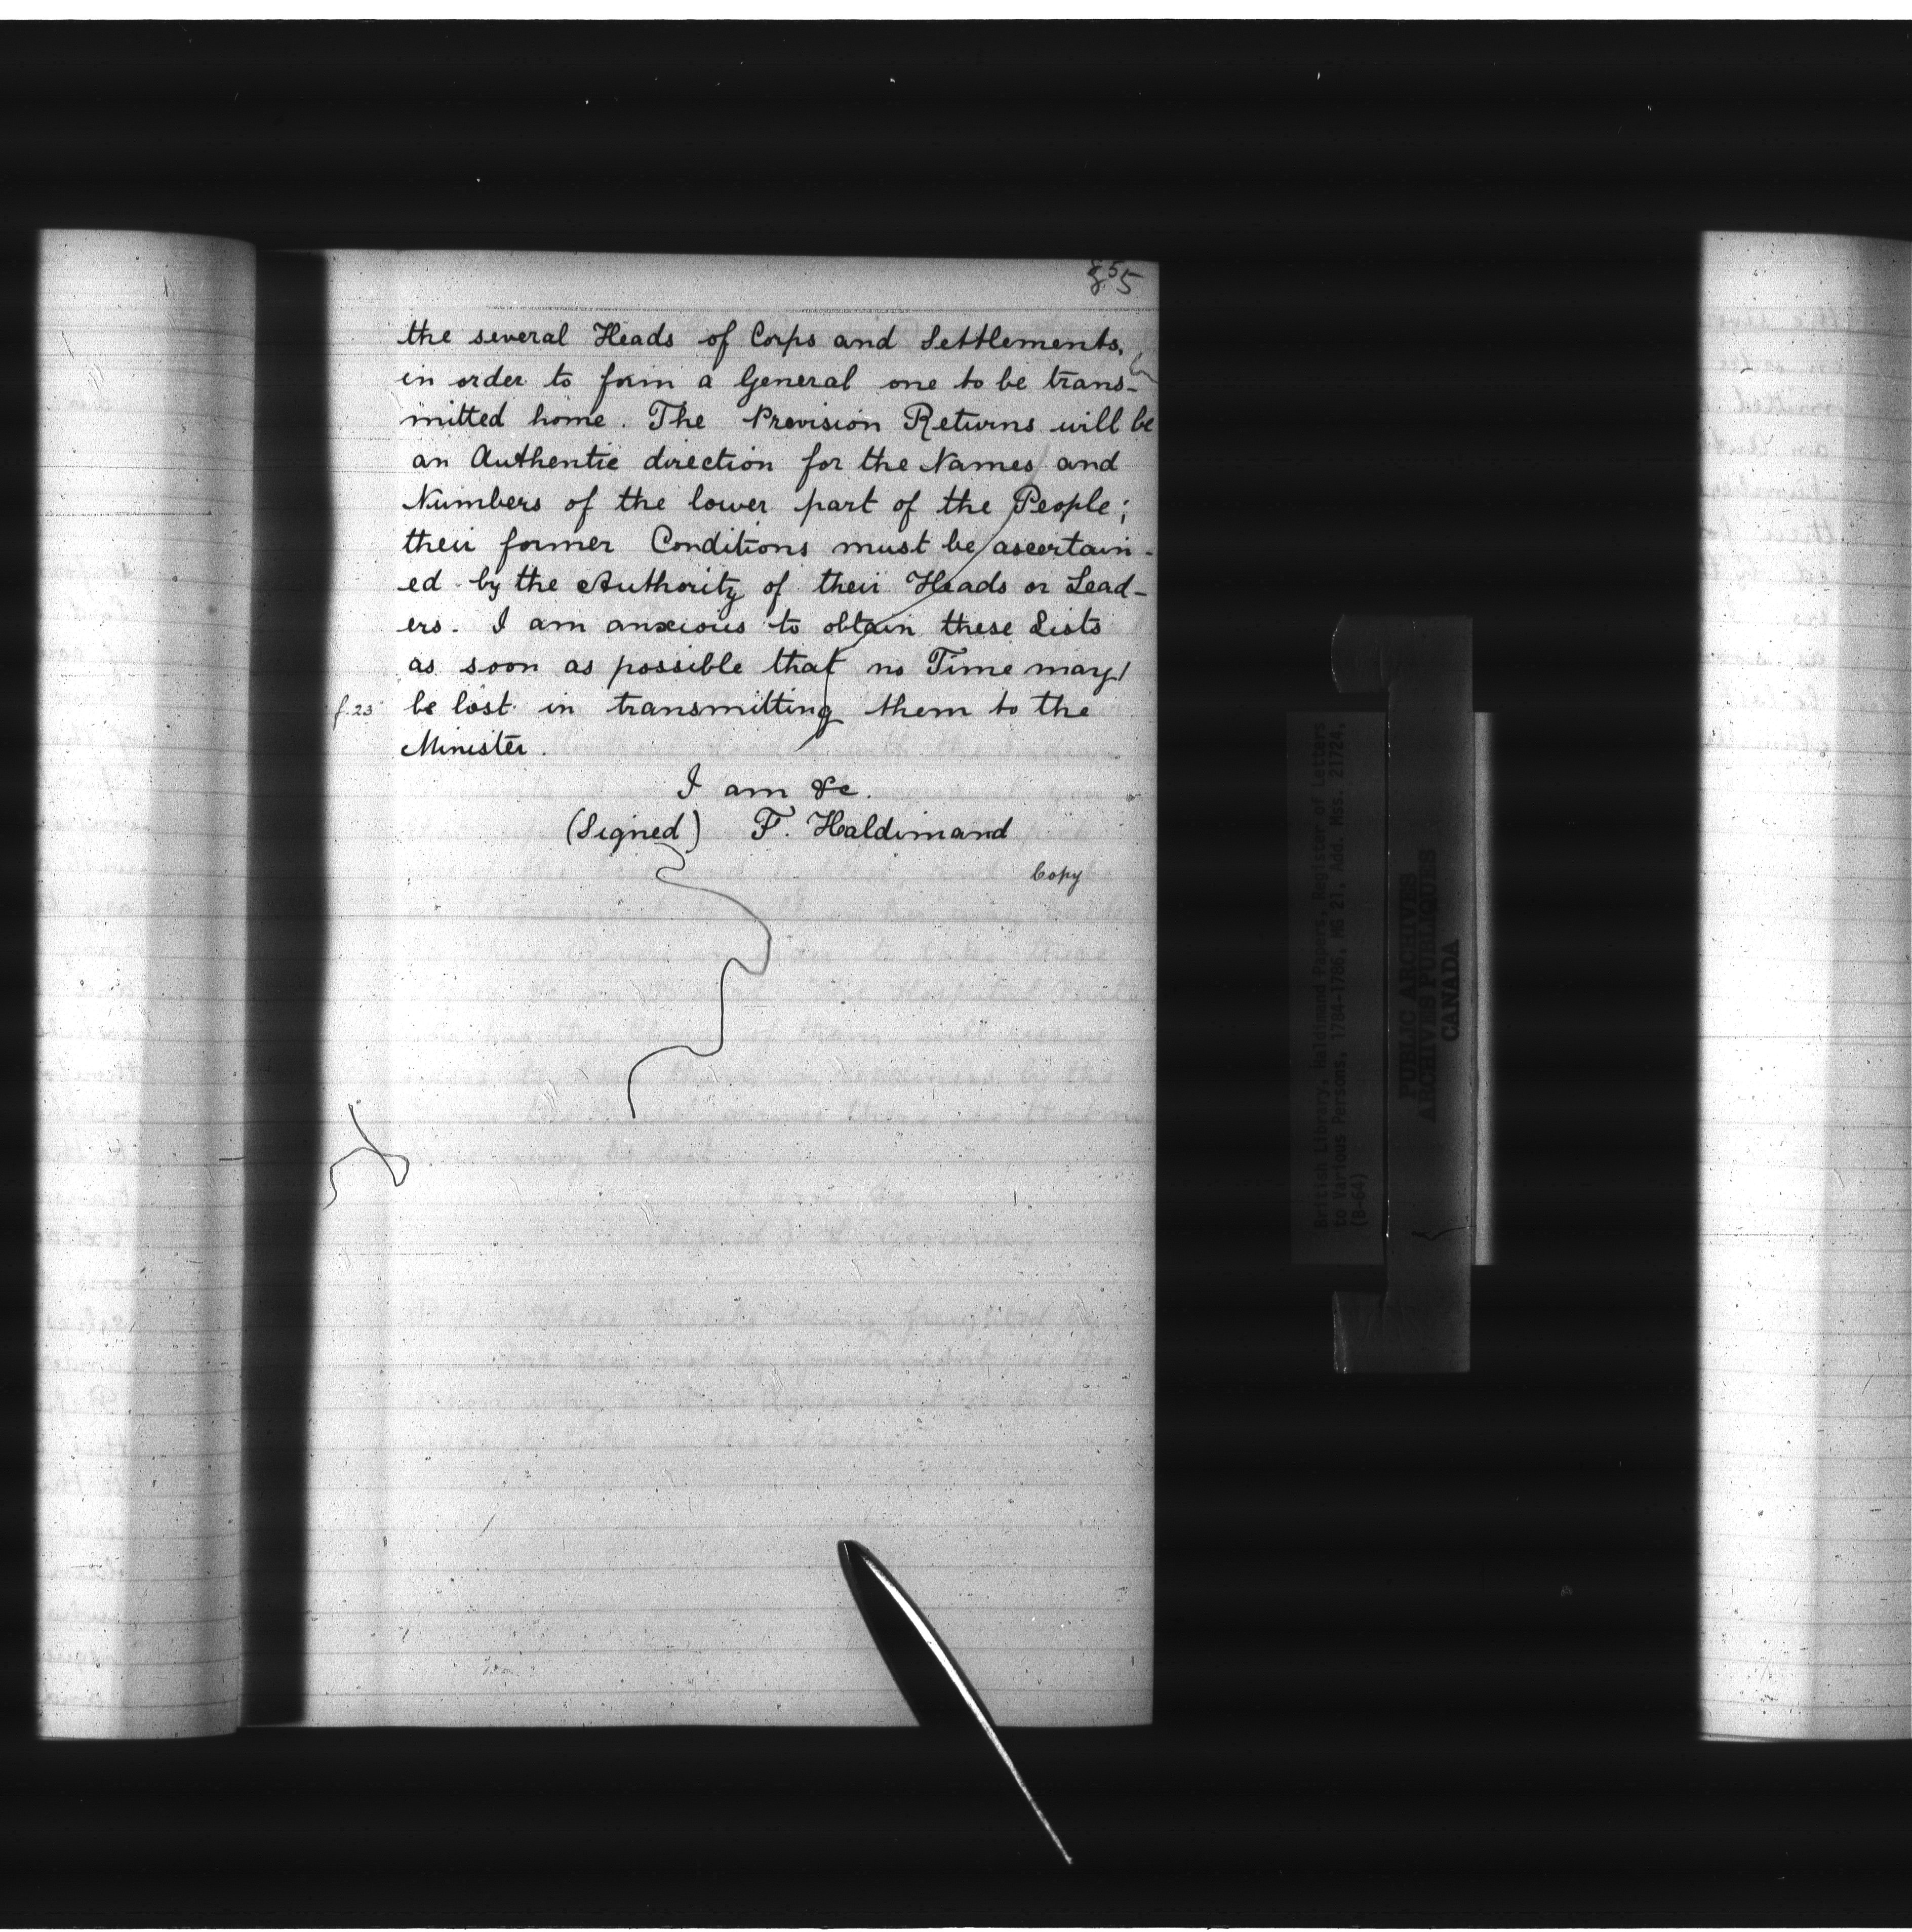 55
the several Heads of Corps and Settlements,
in order to form a General one to be trans-
mitted home. The Provision Returns will be
an Authentic direction for the Names and
Numbers of the lower part of the People;
their former Conditions must be ascertain-
ed by the Authority of their Heads or Lead-
ers. I am anxious to obtain these Lists
as soon as possible that no Time may
f.23 be lost in transmitting them to the
Minister.
I am &c.
(Signed) F. Haldimand
Copy
British Library, Haldimand Papers, Register of Letters
to Various Persons, 1784-1786, MG 21, Add. Mss. 21724,
(B-64)
PUBLIC ARCHIVES
ARCHIVES PUBLIQUES
CANADA